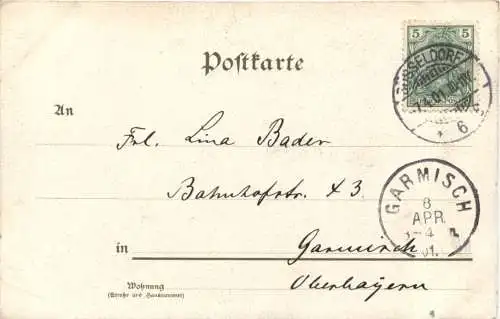 5
Postkarte
DÜSSELDORF
7.4.01.
* 6
An
Frl. Lina Bader
Bahnhofstr. 43
GARMISCH
8
APR.
3-4
01.
in Garmisch
Oberbayern
Wohnung
(Straße und Hausnummer)